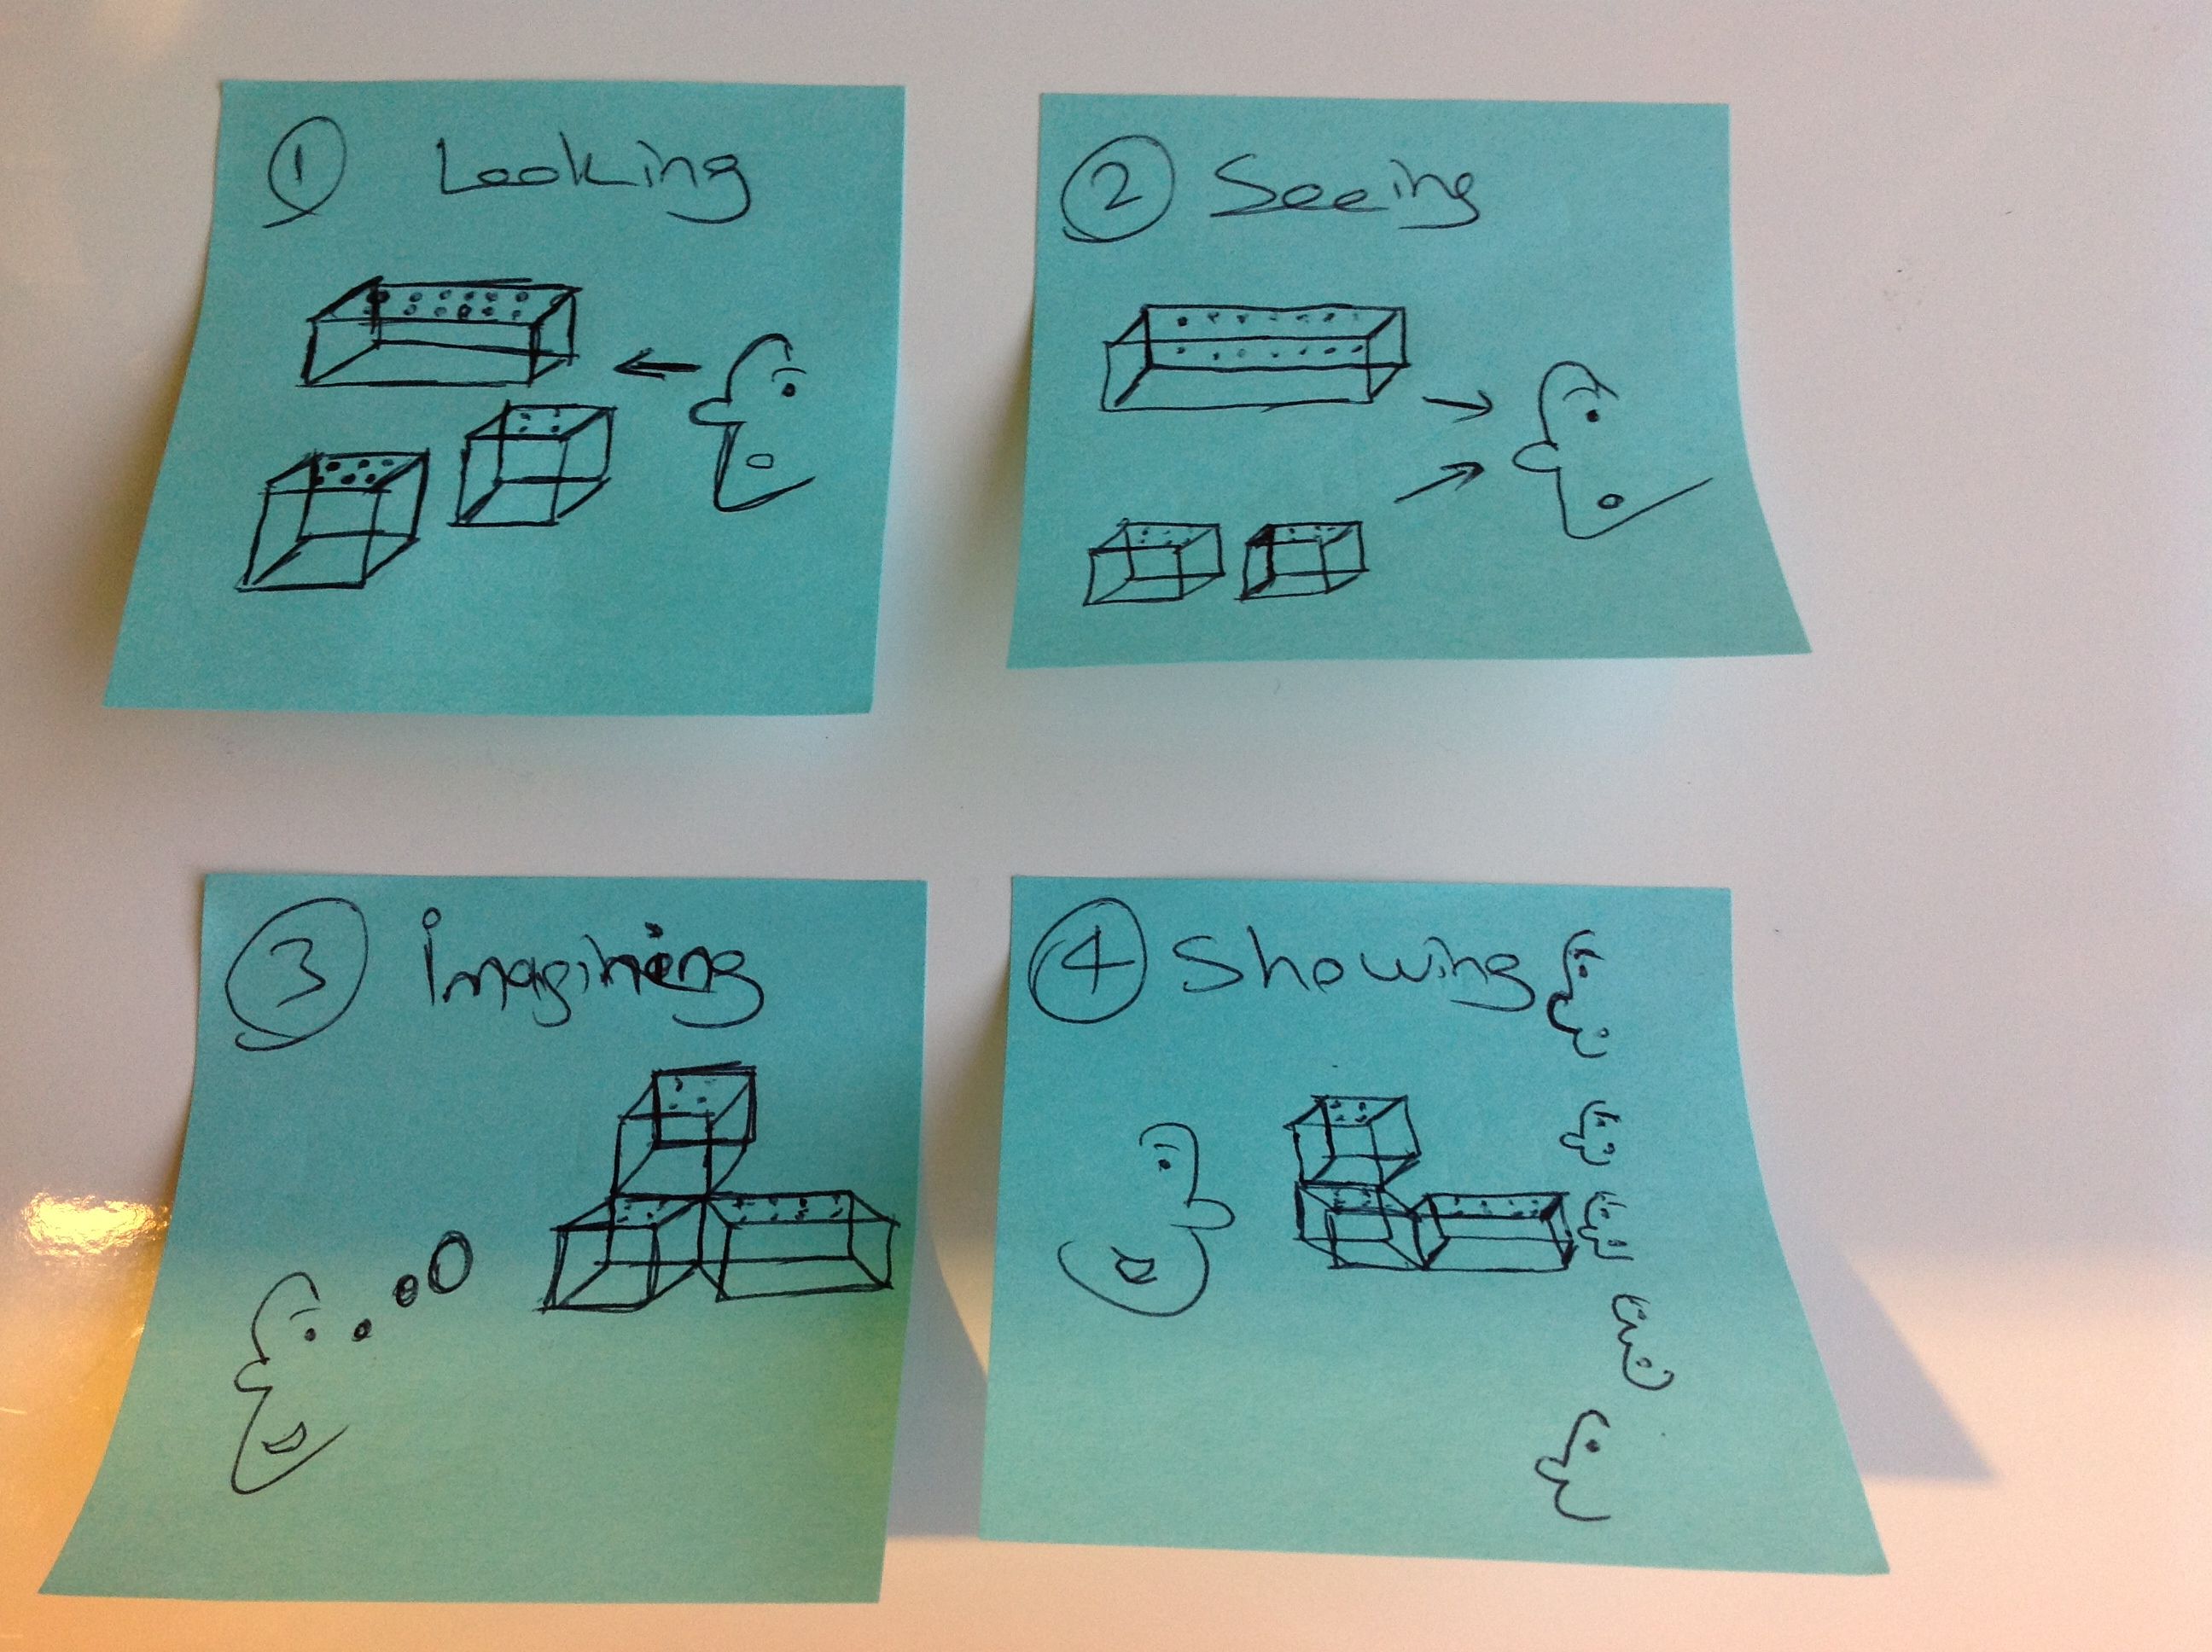 1 Looking
2 Seeing
3 imagining
4 Showing